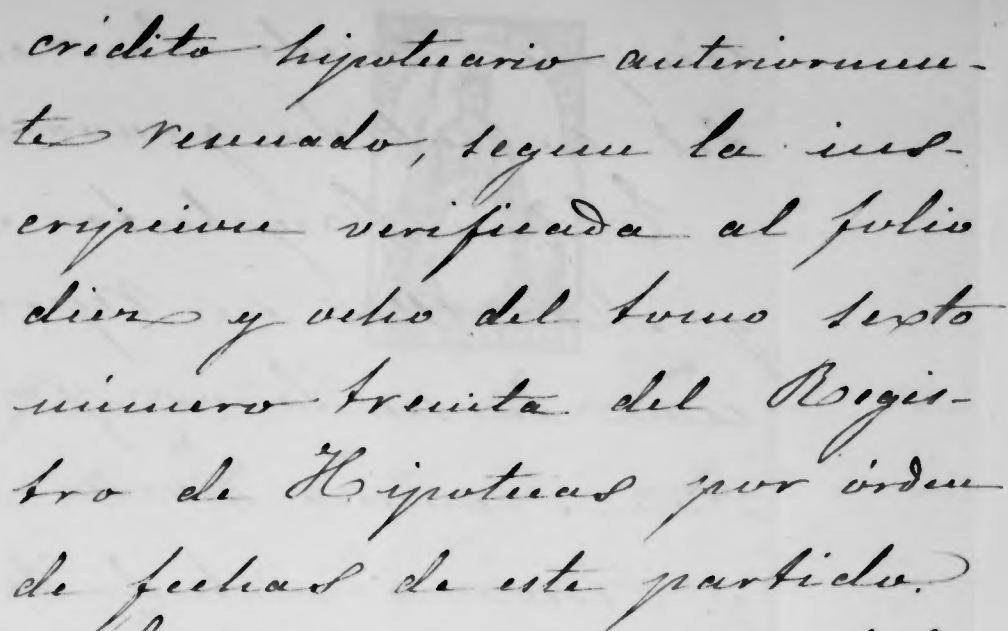 crédito hipotecario anteriormen-
te resenado, segun la ins-
cripcion verificada al folio
diez y ocho del tomo sexto
número treinta del Regis-
tro de Hipotecas por órden
de fechas de este partido.